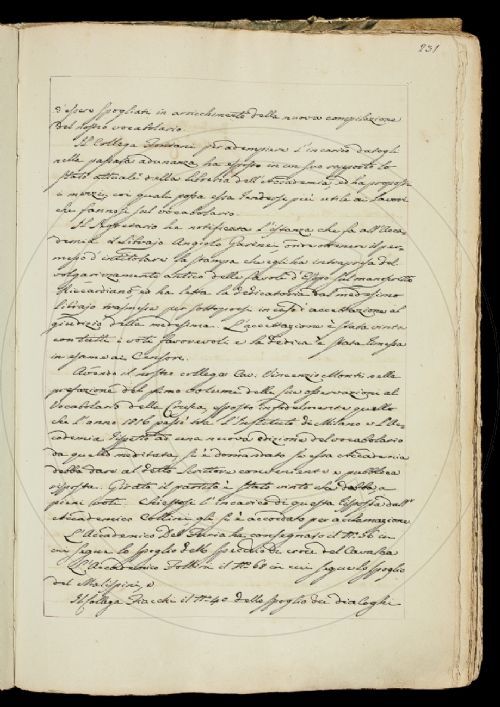 231
d'essere spogliati in arricchimento della nuova compilazione
del nostro vocabolario.
Il Collega Fontani per adempiere l'incarico datogli
nella passata adunanza, ha esposto in un suo rapporto lo
stato attuale della libreria dell'Accademia, ed ha proposti
i mezzi, coi quali possa essa rendersi più utile ai lavori
che fannosi sul vocabolario.
Il Segretario ha notificata l'istanza che fa all'Acca-
demia il librajo Angiolo Garinei per ottenere il per-
messo d'intitolare la stampa che egli ha intrapresa del
volgarizzamento antico delle favole d'Esopo sul manoscritto
Riccardiano, ed ha letta la dedicatoria dal medesimo
librajo trasmessa per sottoporsi in caso di accettazione al
giudizio della medesima. L'accettazione è stata vinta
con tutti i voti favorevoli, e la dedica è stata rimessa
in esame ai Censori.
Avendo il nostro collega Cav. Vincenzio Monti nella
prefazione del primo volume delle sue osservazioni al
Vocabolario della Crusca, esposto infedelmente quello
che l'anno 1816 passò tra l'Instituto di Milano e l'Ac-
cademia rispetto ad una nuova edizione del vocabolario
da quello meditata, si è domandato se essa Accademia
debba dare al detto Scrittore conveniente e pubblica
risposta. Girato il partito è stato vinto che debba a
pieni voti. Chiestosi l'incarico di questa risposta dall'
Accademico Collini gli si è accordato per acclamazione.
L'Accademico Del Furia ha consegnato il N.o 36 in
cui segue lo spoglio dello specchio di croce del Cavalca
L'Accademico Follini il N.o 60 in cui segue lo spoglio
del Malispini, e
Il Collega Fiacchi il N.o 40 dello spoglio dei dialoghi